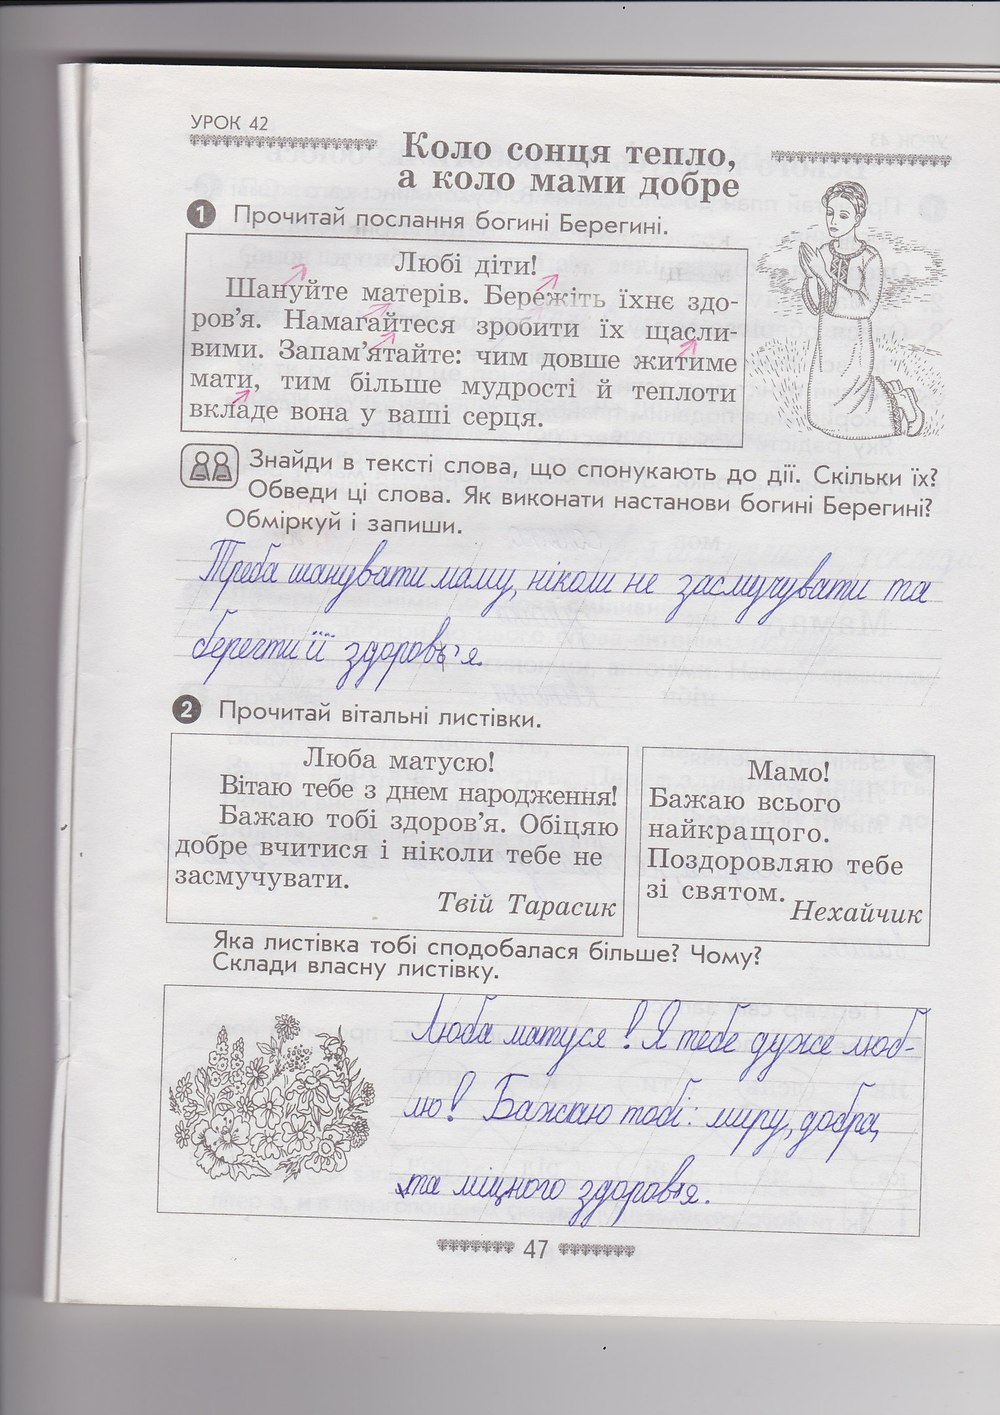 УРОК 42
Коло сонця тепло,
а коло мами добре
1 Прочитай послання богині Берегині.
Любі діти!
Шануйте матерів. Бережіть їхнє здо-
ров’я. Намагайтеся зробити їх щасли-
вими. Запам’ятайте: чим довше житиме
мати, тим більше мудрості й теплоти
вкладе вона у ваші серця.
Знайди в тексті слова, що спонукають до дії. Скільки їх?
Обведи ці слова. Як виконати настанови богині Берегині?
Обміркуй і запиши.
Треба шанувати маму, ніколи не засмучувати та
берегти її здоров'я.
2 Прочитай вітальні листівки.
Люба матусю!
Вітаю тебе з днем народження!
Бажаю тобі здоров’я. Обіцяю
добре вчитися і ніколи тебе не
засмучувати.
Твій Тарасик
Мамо!
Бажаю всього
найкращого.
Поздоровляю тебе
зі святом.
Нехайчик
Яка листівка тобі сподобалася більше? Чому?
Склади власну листівку.
Люба матуся! Я тебе дуже люб-
лю! Бажаю тобі: миру, добра,
та міцного здоров'я.
47